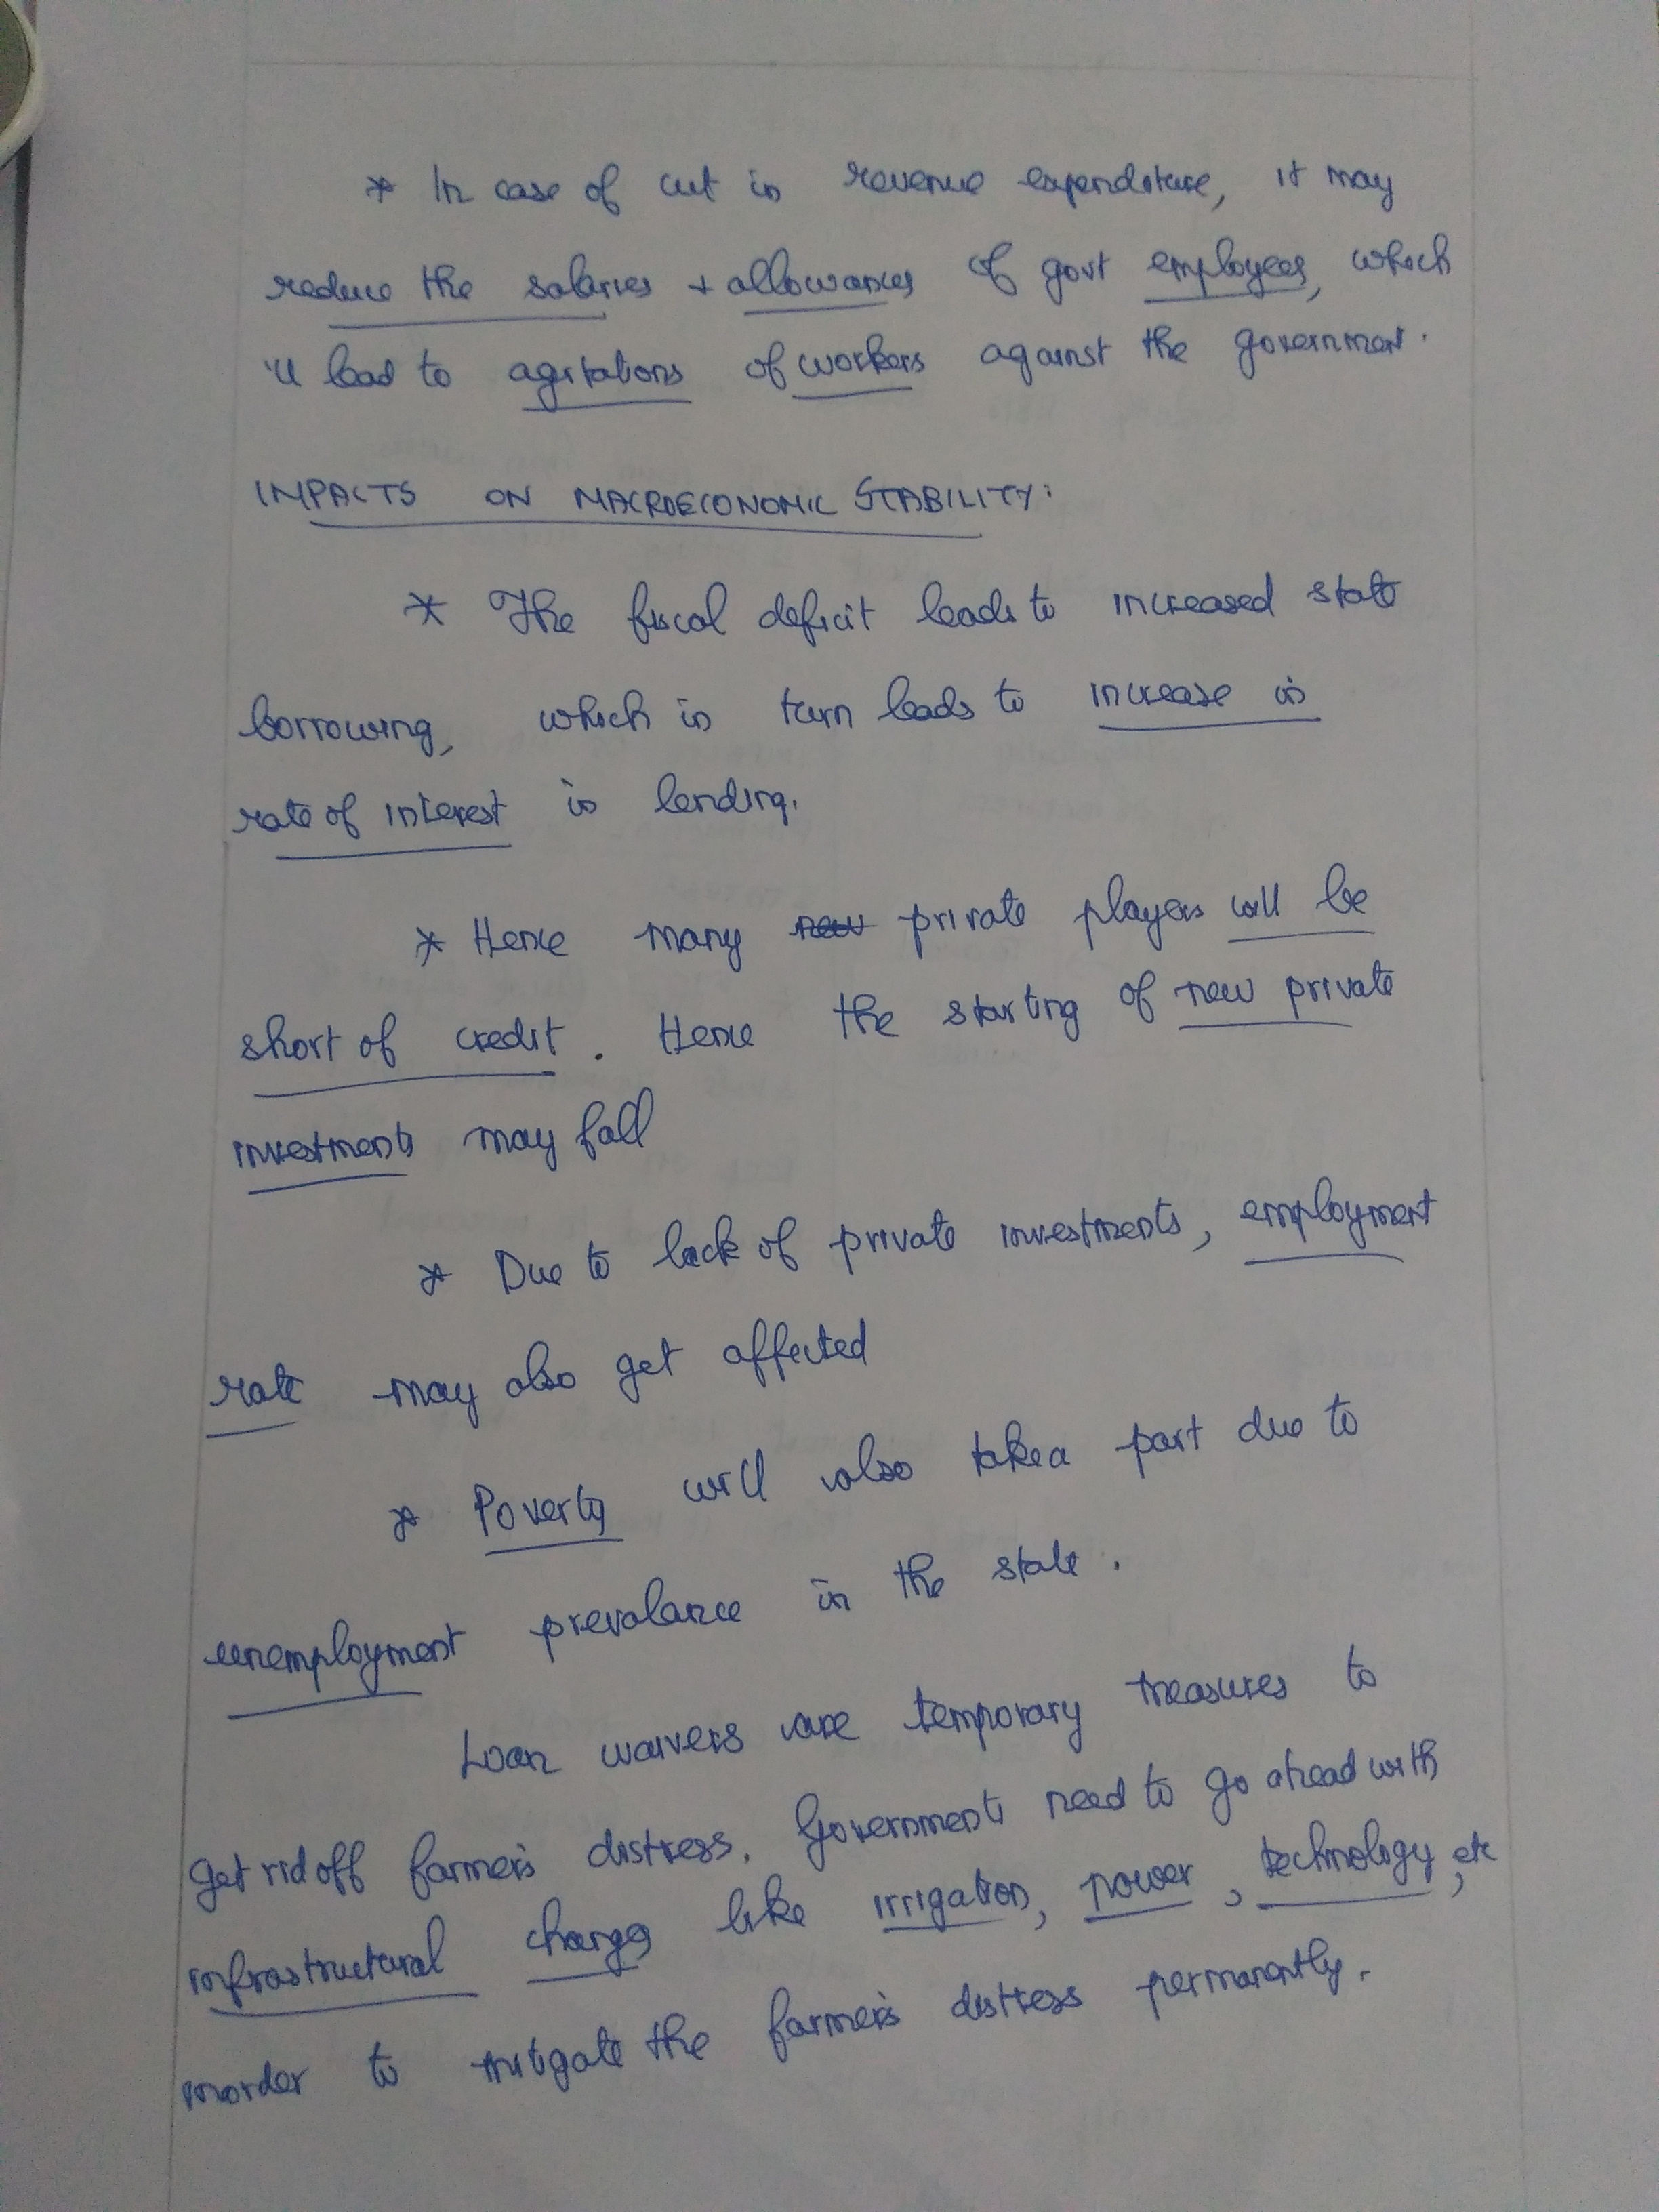 * In case of cut in revenue expenditure, it may
reduce the salaries + allowances of govt employees, which
'll lead to agitations of workers against the government.
IMPACTS ON MACROECONOMIC STABILITY:
* The fiscal deficit leads to increased state
borrowing, which in turn leads to increase in
rate of interest in lending.
* Hence many new private players will be
short of credit. Hence the starting of new private
investments may fall
* Due to lack of private investments, employment
rate may also get affected
* Poverty will also take a part due to
unemployment prevalance in the state.
Loan waivers are temporary measures to
get rid off farmer's distress. Governments need to go ahead with
infrastructural changes like irrigation, power, technology, etc
inorder to mitigate the farmer's distress permanently.